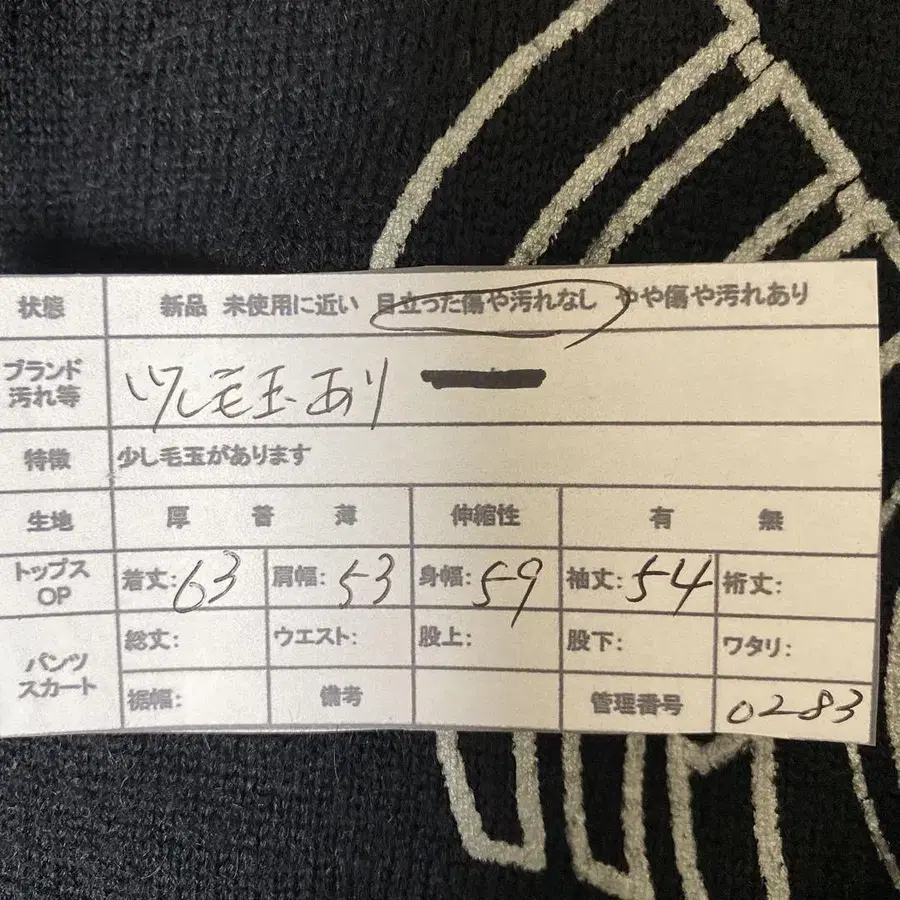 状態 新品 未使用に近い 目立った傷や汚れなし やや傷や汚れあり
ブランド
汚れ等 少し毛玉あり
特徴 少し毛玉があります
生地 厚 普 薄 伸縮性 有 無
トップス
OP 着丈:63 肩幅:53 身幅:59 袖丈:54 裄丈:
パンツ
スカート 総丈: ウエスト: 股上: 股下: ワタリ:
裾幅: 備考 管理番号 0283